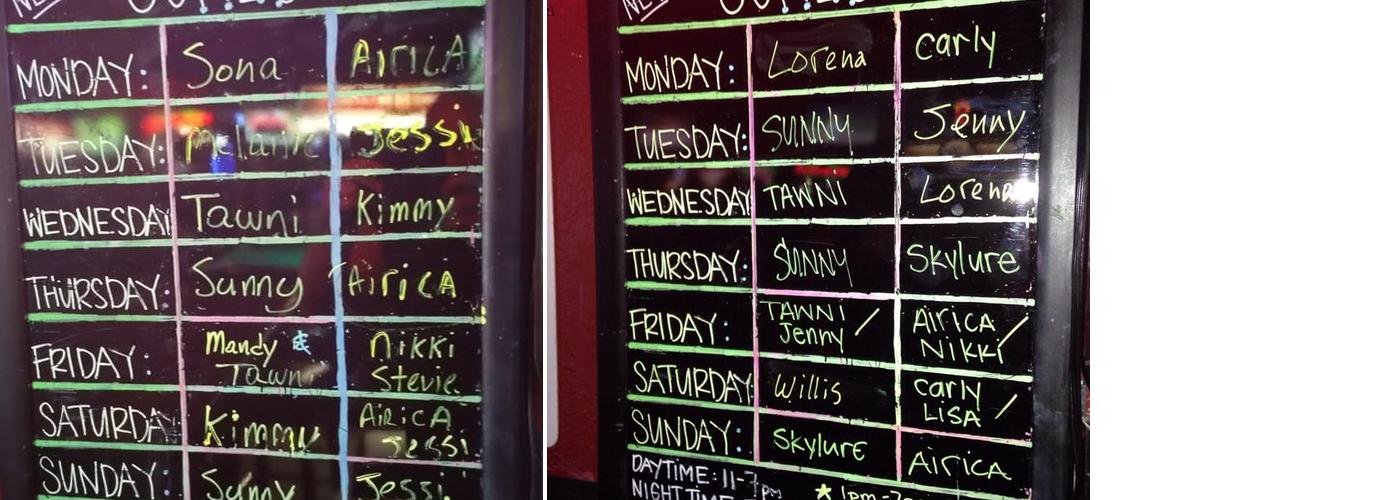 MONDAY: Sona AiricA
TUESDAY: Melanie Jessi
WEDNESDAY Tawni Kimmy
THURSDAY: Sunny AiricA
FRIDAY: Mandy & Nikki
Tawni Stevie
SATURDAY Kimmy AiricA
Jessi
SUNDAY: Sunny Jessi
MONDAY: Lorena Carly
TUESDAY: SUNNY Jenny
WEDNESDAY TAWNI Lorena
THURSDAY: SUNNY Skylure
FRIDAY: TAWNI / AiricA /
Jenny NiKKi
SATURDAY: Willis Carly
LISA /
SUNDAY: SkylurE AiricA
DAYTIME: 11-7pm
NIGHTTIME ★ 1pm-7